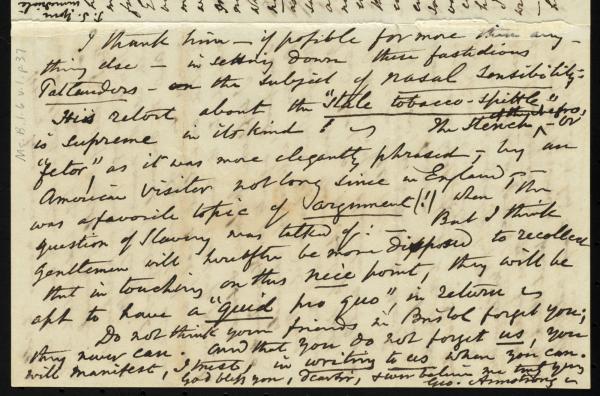 I thank him — if possible for more than any-
thing else — in setting down these fastidious
— on the subject of nasal sensibility.
His retort about the "Stale tobacco-spittle"
is supreme in its kind! The Stench of the negro, or
"fetor", as it was more elegantly phrased, by an
American visitor not long since in England —
was a favorite topic of argument (!) when the
question of Slavery was talked of: — But I think
Gentlemen will hereafter be more disposed to recollect
that in touching on this nice point, they will be
apt to have a "quid pro quo", in return is
Do not think your friends in Bristol forget you;
they never can. And that you do not forget us, you
will manifest, I trust, in writing to us when you can.
God bless you, dear Sir, & ever believe me truly yours
Geo. Armstrong
Ms. B.1.6 v.1, p37